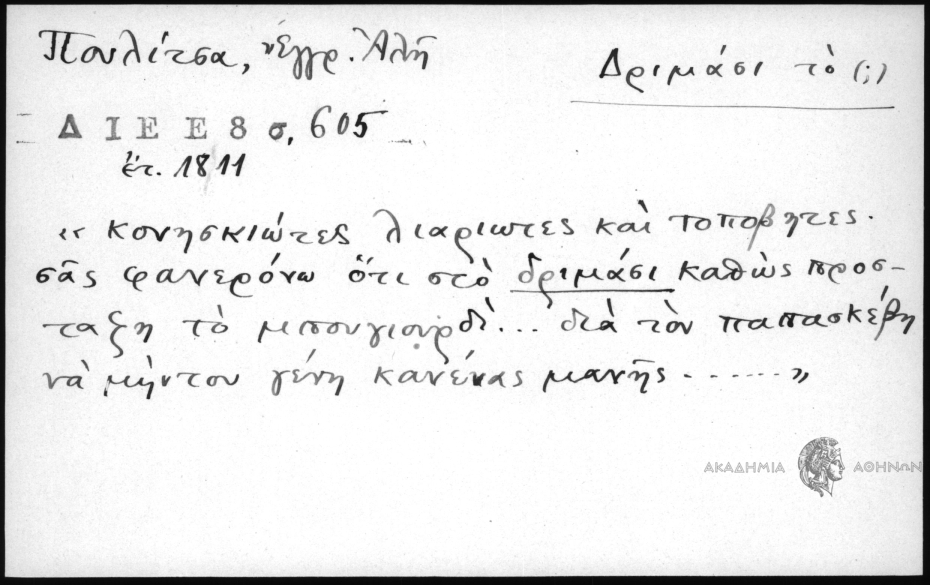 Πουλίτσα, Ἔγγρ. Ἀλῆ
Δριμάσι τὸ (;)
Δ Ι Ε Ε 8 σ, 605
ἔτ. 1811
« κονησκιώτες λιαριωτες καὶ τοποβητες.
σᾶς φανερόνω ὅτι στὸ δριμάσι καθὼς προσ-
ταξη τὸ μπουγιουρδὶ... διὰ τὸν παπασκέβη
νὰ μὴντου γένη κανένας μανῆς ------»
ΑΚΑΔΗΜΙΑ ΑΘΗΝΩΝ